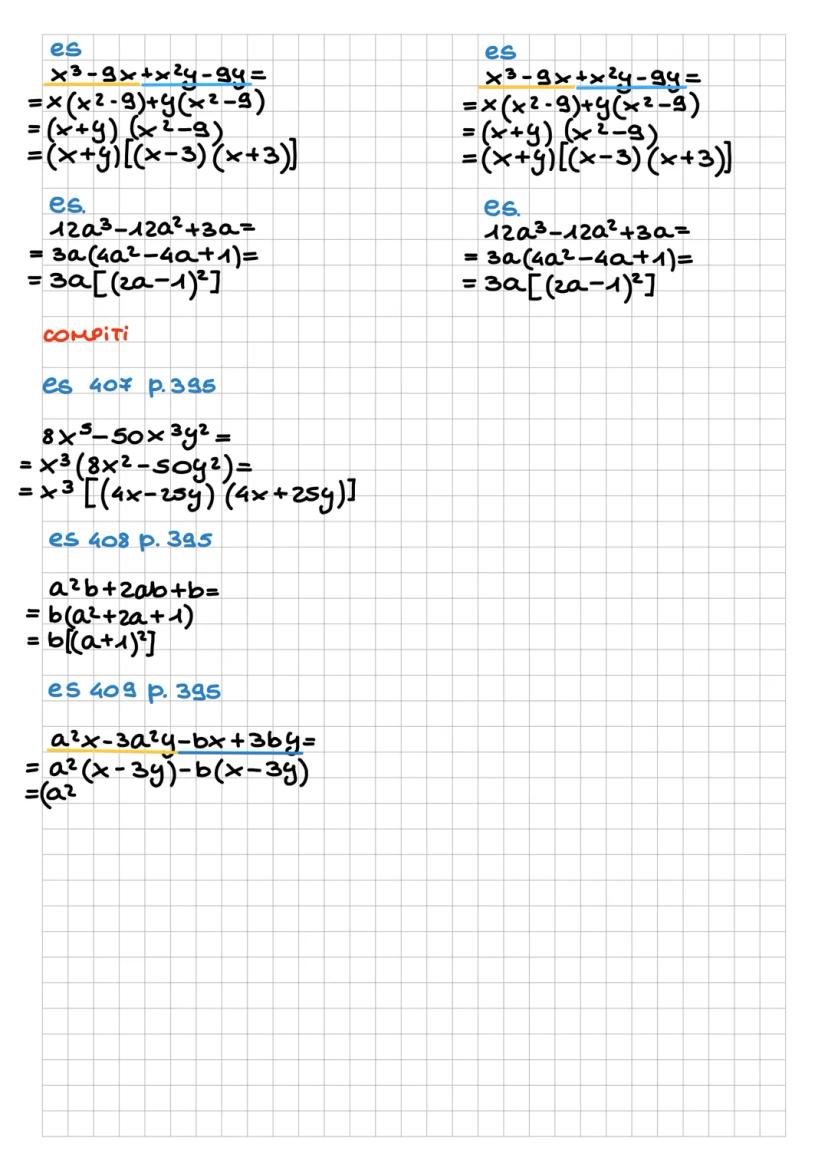 es
x³-9x+x²y-9y=
=x(x²-9)+y(x²-9)
=(x+y) (x²-9)
=(x+y)[(x-3) (x+3)]
es.
12a³-12a²+3a=
= 3a(4a²-4a+1)=
= 3a[(2a-1)²]
es
x³-9x+x²y-9y=
=x(x²-9)+y(x²-9)
=(x+y) (x²-9)
=(x+y)[(x-3) (x+3)]
es.
12a³-12a²+3a=
= 3a(4a²-4a+1)=
= 3a[(2a-1)²]
COMPITI
es 407 p.395
8x⁵-50x³y²=
=x³(8x²-50y²)=
=x³[(4x-25y) (4x+25y)]
es 408 p.395
a²b+2ab+b=
= b(a²+2a+1)
= b[(a+1)²]
es 409 p.395
a²x-3a²y-bx+3by=
= a²(x-3y)-b(x-3y)
=(a²